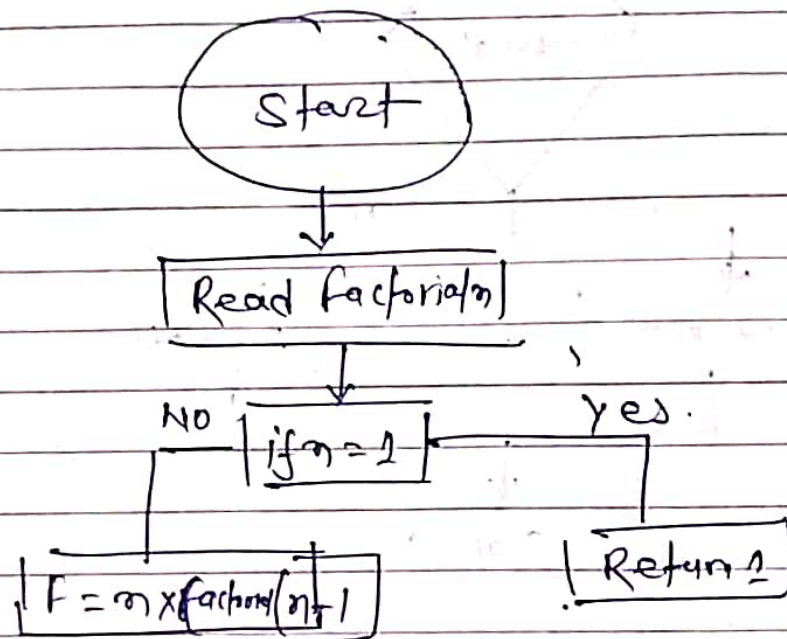 Start
Read factorial n
NO
if n = 1
yes.
F = n x factorial (n-1
Return 1